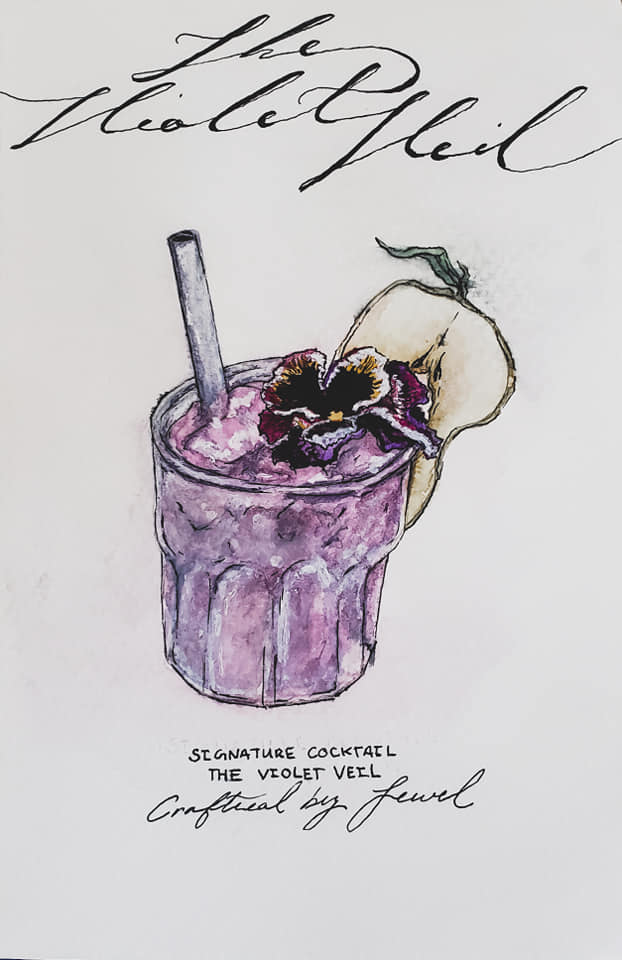 The
Violet Veil
SIGNATURE COCKTAIL
THE VIOLET VEIL
Crafted by Jewel